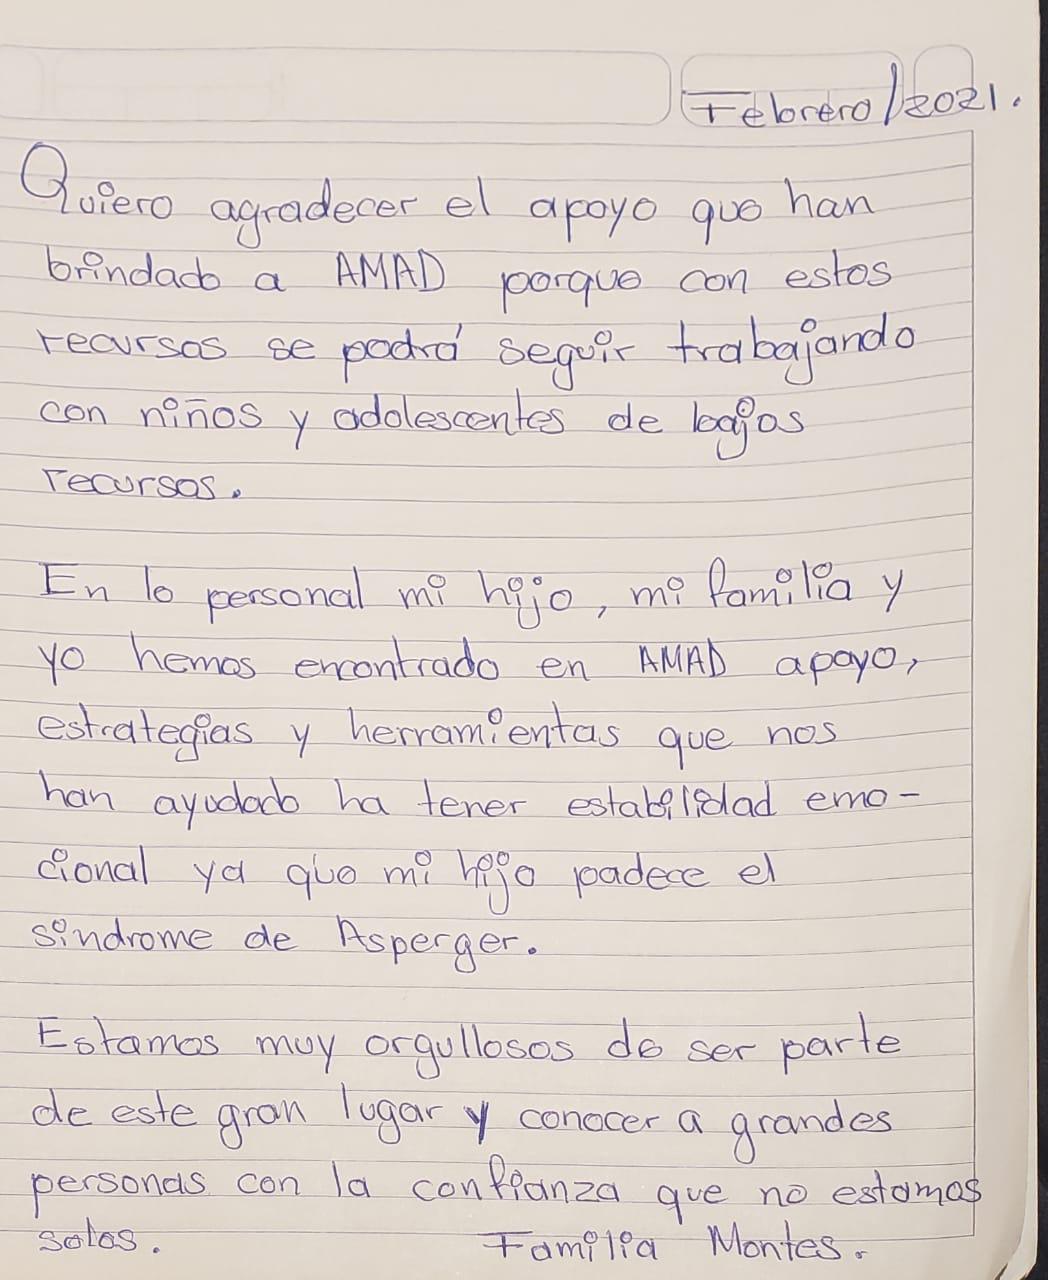 Febrero/2021.
Quiero agradecer el apoyo que han
brindado a AMAD porque con estos
recursos se podrá seguir trabajando
con niños y adolescentes de bajos
recursos.
En lo personal mi hijo, mi familia y
yo hemos encontrado en AMAD apoyo,
estrategias y herramientas que nos
han ayudado ha tener estabilidad emo-
cional ya que mi hijo padece el
sindrome de Asperger.
Estamos muy orgullosos de ser parte
de este gran lugar y conocer a grandes
personas con la confianza que no estamos
solos. Familia Montes.